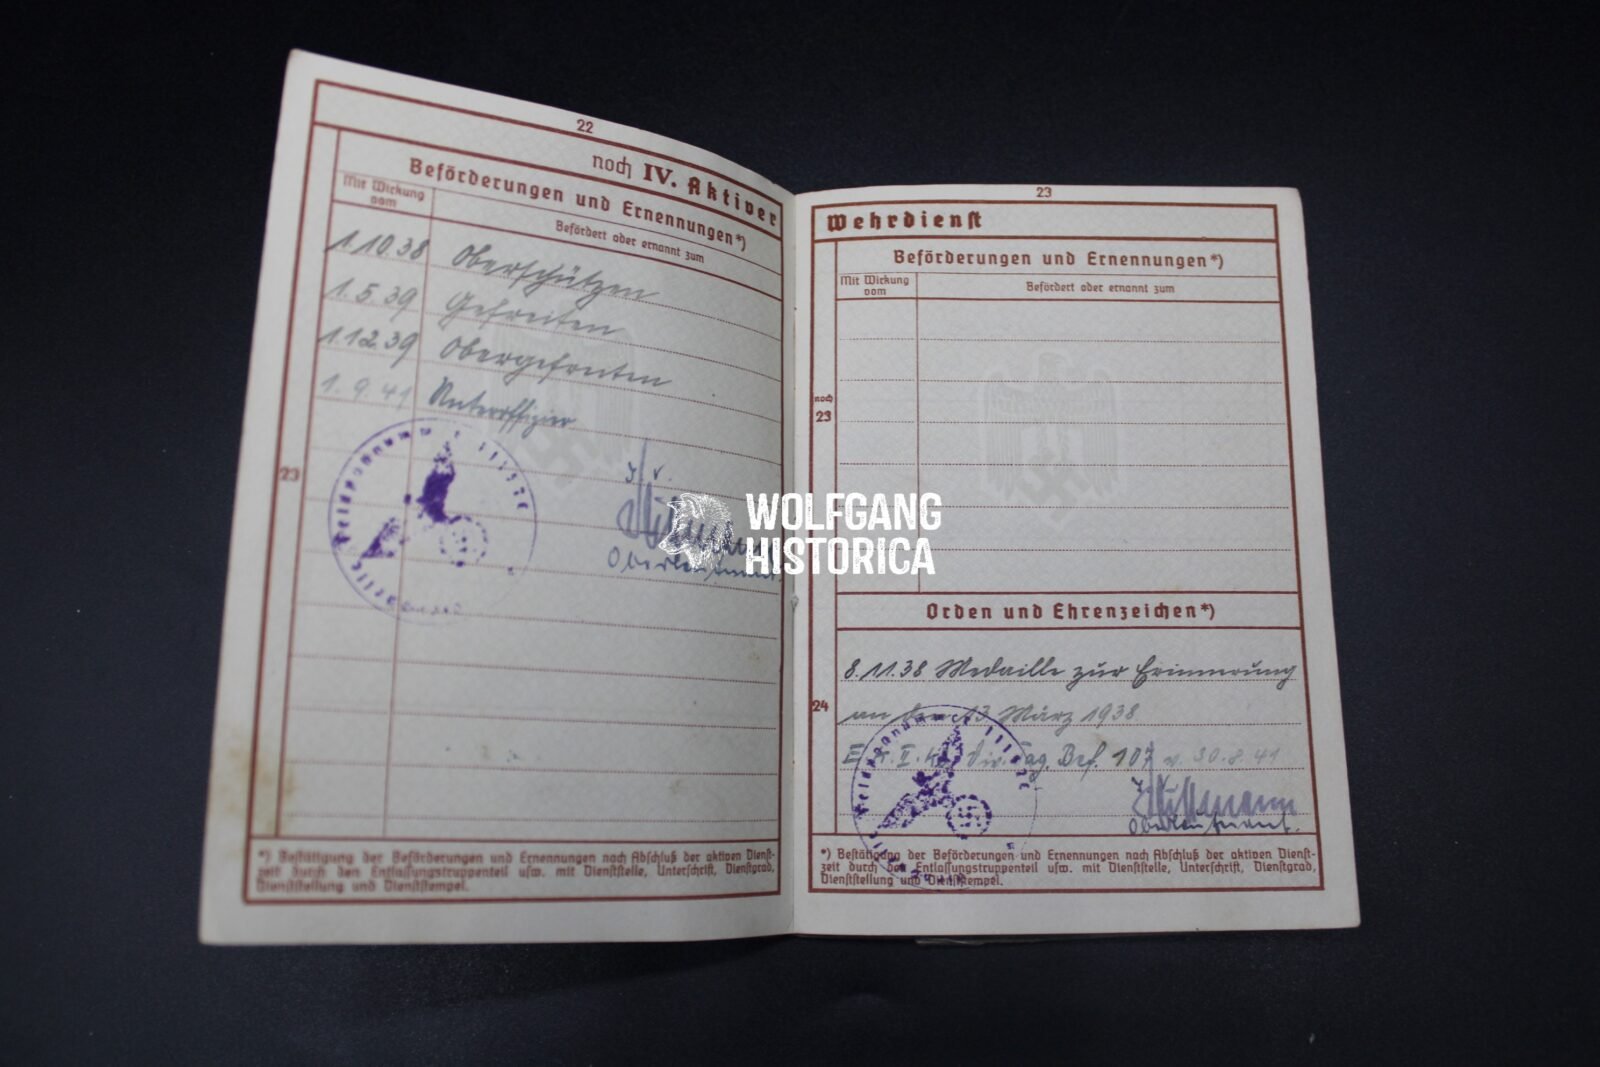 22
noch IV. Aktiver
Beförderungen und Ernennungen*)
Mit Wirkung vom
Befördert oder ernannt zum
1.10.38 Oberschützen
1.5.39 Gefreiten
1.12.39 Obergefreiten
1.9.41 Unteroffizier
23
J.V.
Oberleutnant.
*) Bestätigung der Beförderungen und Ernennungen nach Abschluß der aktiven Dienst-
zeit durch den Entlassungstruppenteil usw. mit Dienststelle, Unterschrift, Dienstgrad,
Dienststellung und Dienststempel.
23
Wehrdienst
Beförderungen und Ernennungen*)
Mit Wirkung vom
Befördert oder ernannt zum
noch
23
WOLFGANG
HISTORICA
Orden und Ehrenzeichen*)
8.11.38 Medaille zur Erinnerung
24
an den 13 März 1938
E.K. II. Kl. Div. Tag. Bef. 107 v. 30.8.41
Oberleutnant.
*) Bestätigung der Beförderungen und Ernennungen nach Abschluß der aktiven Dienst-
zeit durch den Entlassungstruppenteil usw. mit Dienststelle, Unterschrift, Dienstgrad,
Dienststellung und Dienststempel.